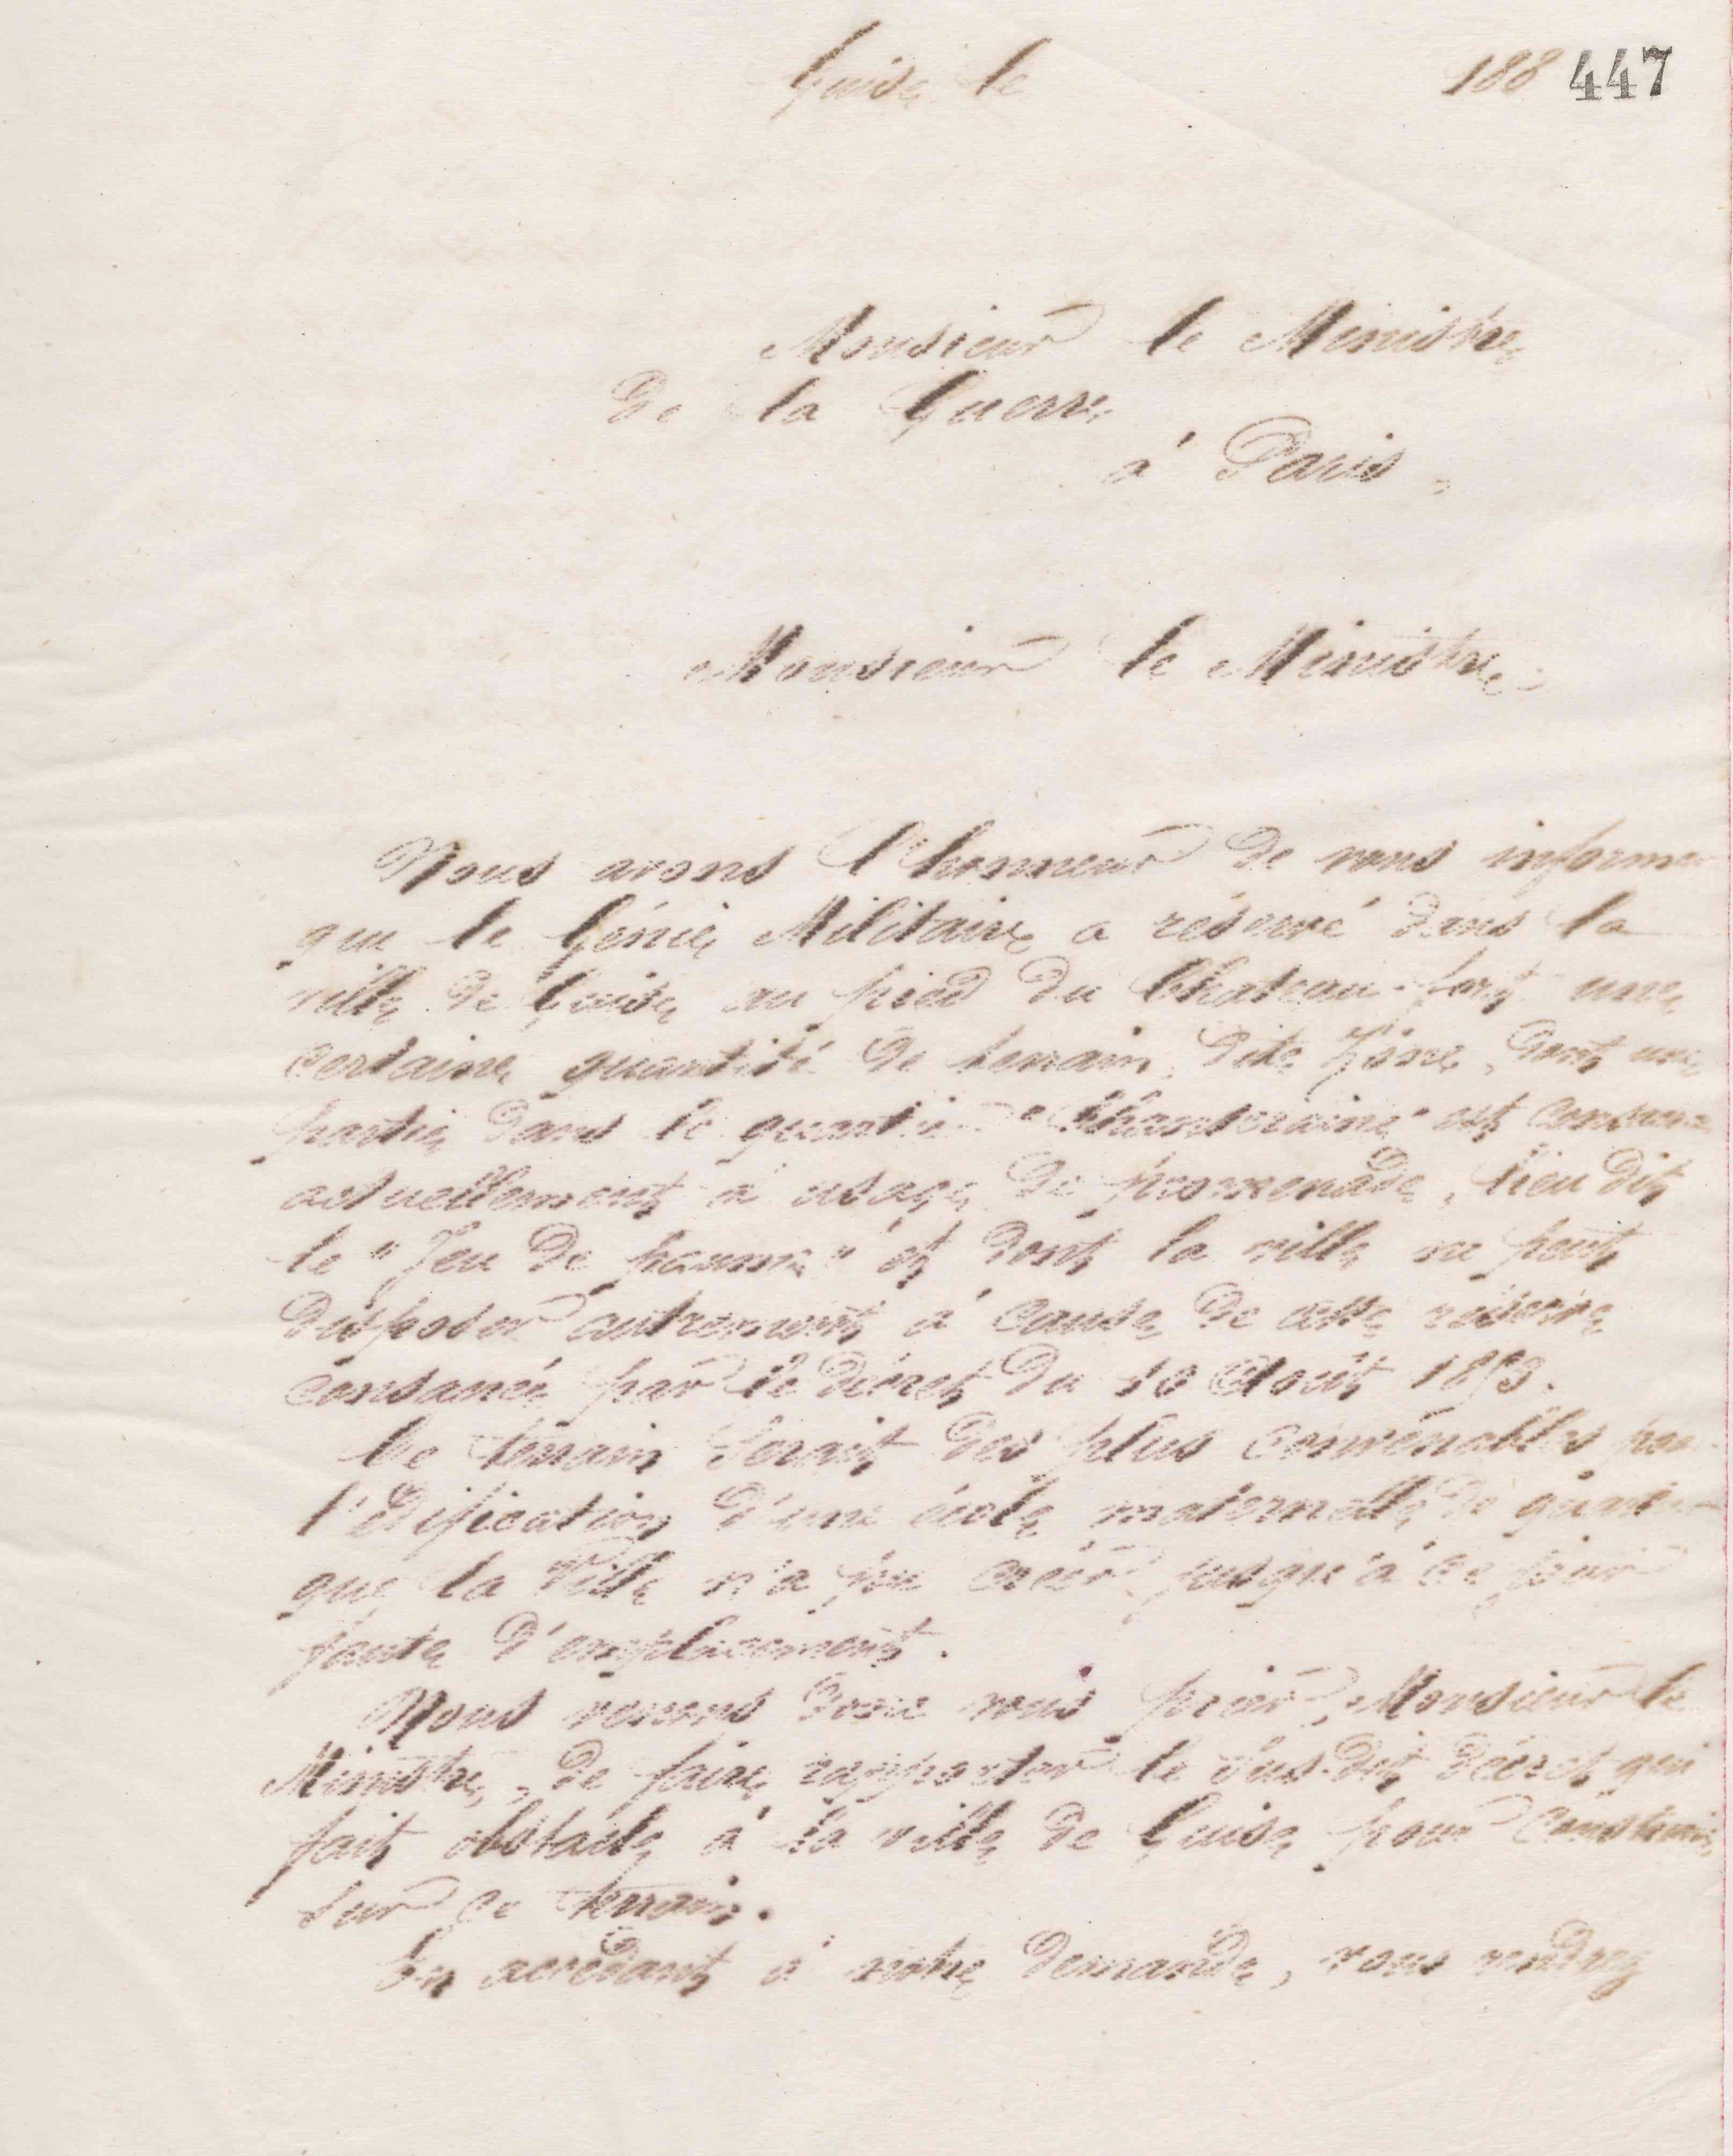 Guise le 188 447
Monsieur le Ministre
de la Guerre
à Paris.
Monsieur le Ministre,
Nous avons l'honneur de vous informer
que le Génie Militaire a réservé dans la
ville de Guise au pied du Chateau-fort une
certaine quantité de terrain, dite Zône, dont une
partie dans le quartier "Chanteraine" est
actuellement à usage de promenade, lieu dit
le "Jeu de paume" et dont la ville ne peut
disposer autrement à cause de cette réserve
consacrée par le décret du 10 Août 1853.
Ce terrain serait des plus convenables pour
l'édification d'une école maternelle de quartier
que la Ville n'a pu créer jusqu'à ce jour
faute d'emplacement.
Nous venons donc vous prier, Monsieur le
Ministre, de faire rapporter le sus-dit décret qui
fait obstacle à la ville de Guise pour construire
sur ce terrain.
En accédant à notre demande, vous rendrez